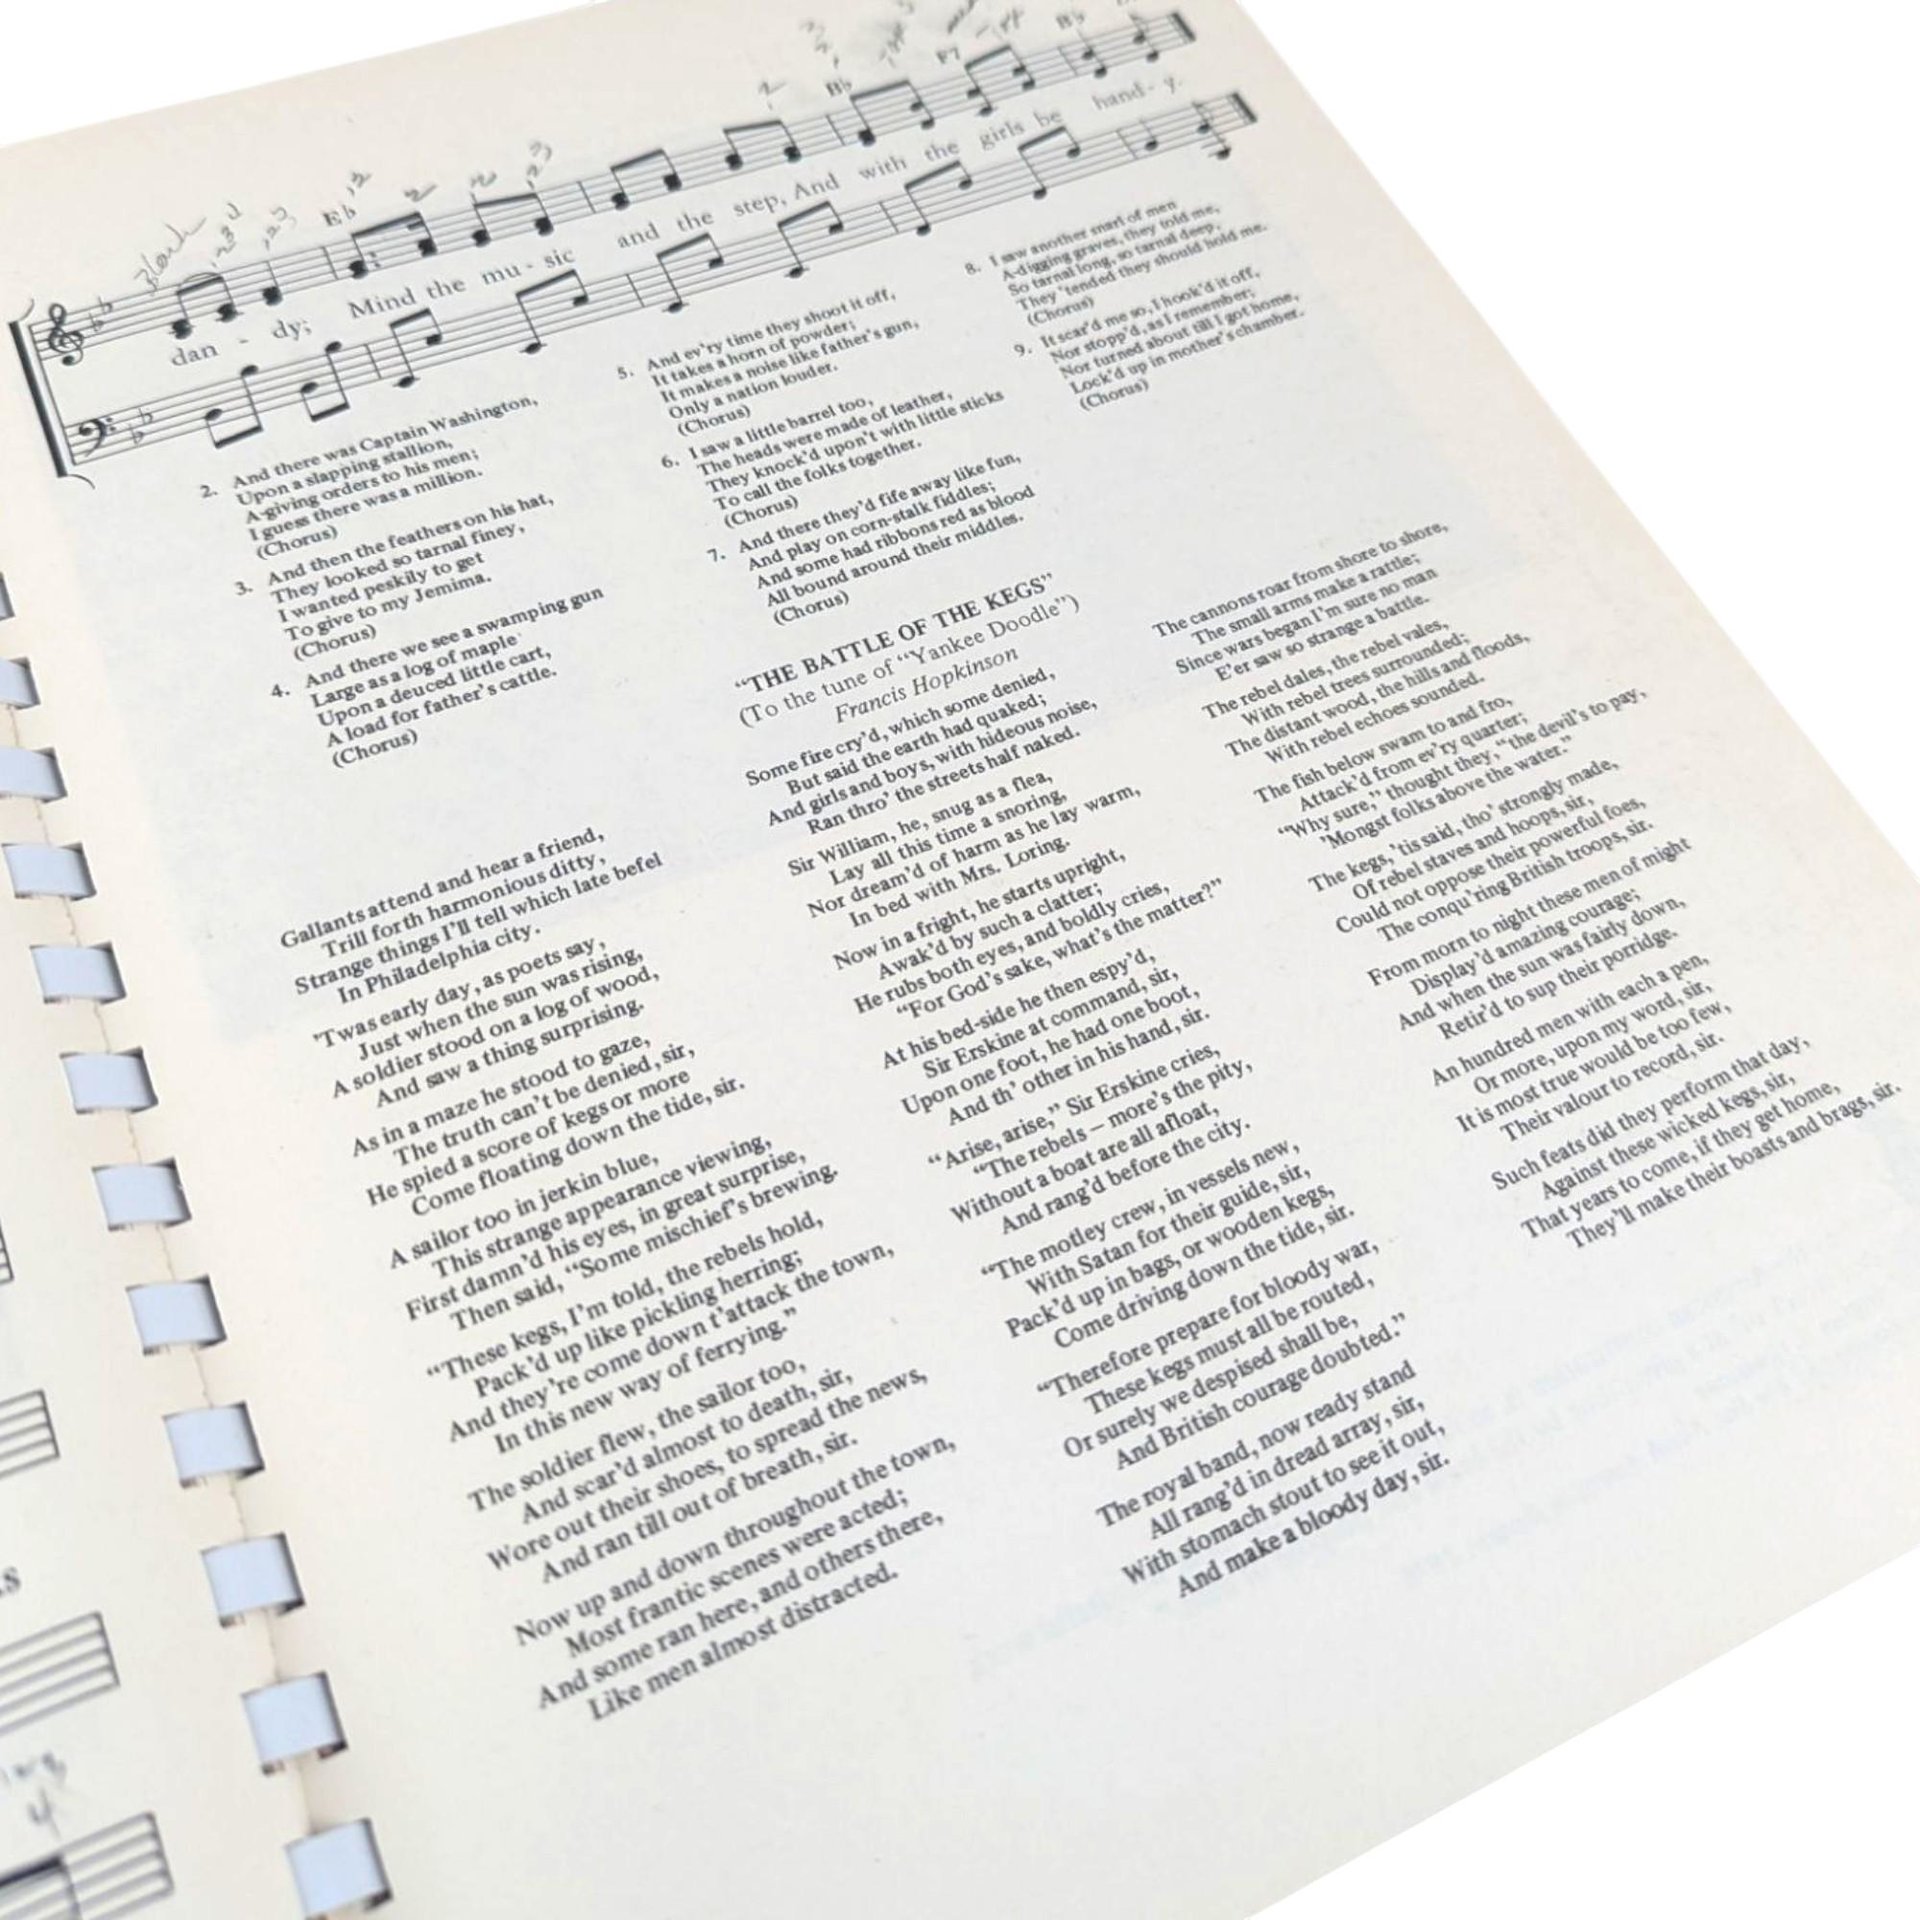 Eb
Bb
F7
Bb
dan - dy; Mind the mu - sic and the step, And with the girls be hand - y.
2. And there was Captain Washington,
Upon a slapping stallion,
A-giving orders to his men;
I guess there was a million.
(Chorus)
3. And then the feathers on his hat,
They looked so tarnal finey,
I wanted peskily to get
To give to my Jemima.
(Chorus)
4. And there we see a swamping gun
Large as a log of maple
Upon a deuced little cart,
A load for father's cattle.
(Chorus)
5. And ev'ry time they shoot it off,
It takes a horn of powder;
It makes a noise like father's gun,
Only a nation louder.
(Chorus)
6. I saw a little barrel too,
The heads were made of leather,
They knock'd upon't with little sticks
To call the folks together.
(Chorus)
7. And there they'd fife away like fun,
And play on corn-stalk fiddles;
And some had ribbons red as blood
All bound around their middles.
(Chorus)
8. I saw another snarl of men
A-digging graves, they told me,
So tarnal long, so tarnal deep,
They 'tended they should hold me.
(Chorus)
9. It scar'd me so, I hook'd it off,
Nor stopp'd, as I remember;
Nor turned about till I got home,
Lock'd up in mother's chamber.
(Chorus)
"THE BATTLE OF THE KEGS"
(To the tune of "Yankee Doodle")
Francis Hopkinson
Gallants attend and hear a friend,
Trill forth harmonious ditty,
Strange things I'll tell which late befel
In Philadelphia city.
'Twas early day, as poets say,
Just when the sun was rising,
A soldier stood on a log of wood,
And saw a thing surprising.
As in a maze he stood to gaze,
The truth can't be denied, sir,
He spied a score of kegs or more
Come floating down the tide, sir.
A sailor too in jerkin blue,
This strange appearance viewing,
First damn'd his eyes, in great surprise,
Then said, "Some mischief's brewing.
"These kegs, I'm told, the rebels hold,
Pack'd up like pickling herring;
And they're come down t'attack the town,
In this new way of ferrying."
The soldier flew, the sailor too,
And scar'd almost to death, sir,
Wore out their shoes, to spread the news,
And ran till out of breath, sir.
Now up and down throughout the town,
Most frantic scenes were acted;
And some ran here, and others there,
Like men almost distracted.
Some fire cry'd, which some denied,
But said the earth had quaked;
And girls and boys, with hideous noise,
Ran thro' the streets half naked.
Sir William, he, snug as a flea,
Lay all this time a snoring,
Nor dream'd of harm as he lay warm,
In bed with Mrs. Loring.
Now in a fright, he starts upright,
Awak'd by such a clatter;
He rubs both eyes, and boldly cries,
"For God's sake, what's the matter?"
At his bed-side he then espy'd,
Sir Erskine at command, sir,
Upon one foot, he had one boot,
And th' other in his hand, sir.
"Arise, arise," Sir Erskine cries,
"The rebels – more's the pity,
Without a boat are all afloat,
And rang'd before the city.
"The motley crew, in vessels new,
With Satan for their guide, sir,
Pack'd up in bags, or wooden kegs,
Come driving down the tide, sir.
"Therefore prepare for bloody war,
These kegs must all be routed,
Or surely we despised shall be,
And British courage doubted."
The royal band, now ready stand
All rang'd in dread array, sir,
With stomach stout to see it out,
And make a bloody day, sir.
The cannons roar from shore to shore,
The small arms make a rattle;
Since wars began I'm sure no man
E'er saw so strange a battle.
The rebel dales, the rebel vales,
With rebel trees surrounded;
The distant wood, the hills and floods,
With rebel echoes sounded.
The fish below swam to and fro,
Attack'd from ev'ry quarter;
"Why sure," thought they, "the devil's to pay,
'Mongst folks above the water."
The kegs, 'tis said, tho' strongly made,
Of rebel staves and hoops, sir,
Could not oppose their powerful foes,
The conqu'ring British troops, sir.
From morn to night these men of might
Display'd amazing courage;
And when the sun was fairly down,
Retir'd to sup their porridge.
An hundred men with each a pen,
Or more, upon my word, sir,
It is most true would be too few,
Their valour to record, sir.
Such feats did they perform that day,
Against these wicked kegs, sir,
That years to come, if they get home,
They'll make their boasts and brags, sir.